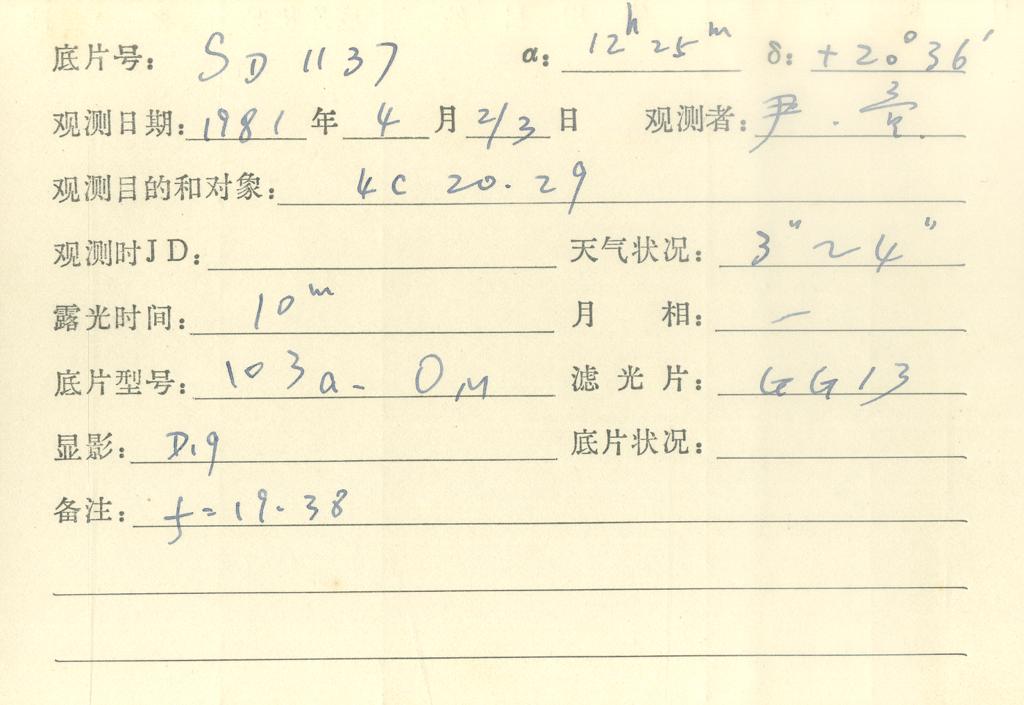 底片号： SD 1137 α： 12ʰ 25ᵐ δ： +20°36′
观测日期： 1981 年 4 月 2/3 日 观测者： 尹.
观测目的和对象： 4C 20.29
观测时JD： 天气状况： 3"～4"
露光时间： 10ᵐ 月 相： —
底片型号： 103a-O 滤光片： GG13
显影： D19 底片状况：
备注： f=19.38